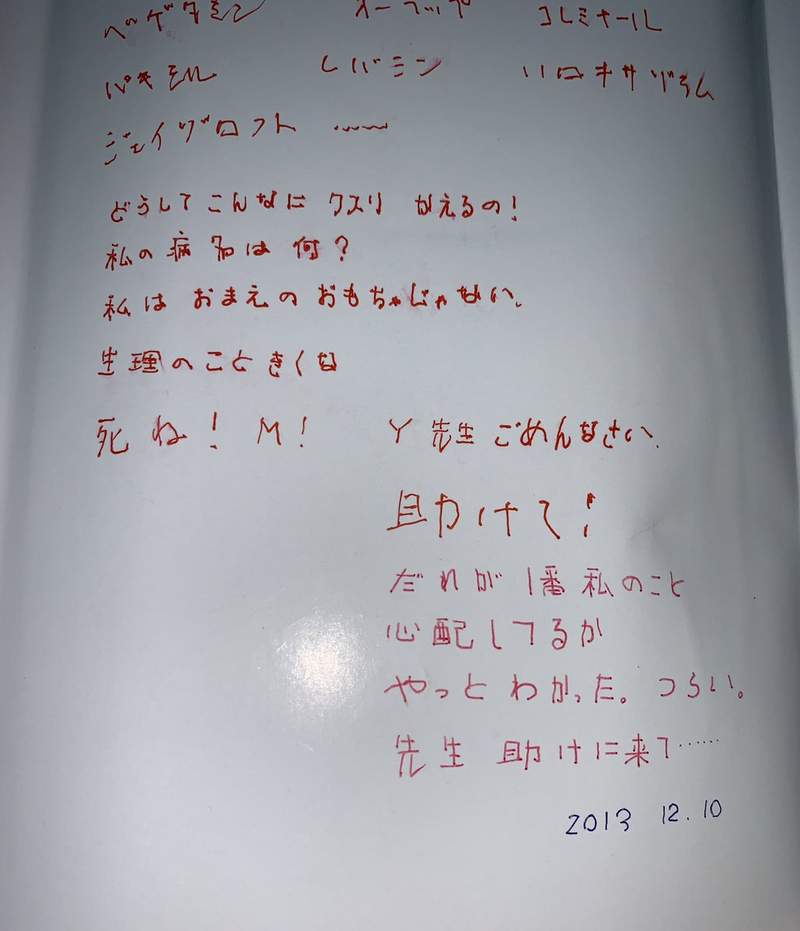 ベゲタミン オーラップ コレミナール
パキシル レバミン ハロキサゾラム
ジェイゾロフト ……
どうしてこんなに クスリ かえるの!
私の病名は何?
私は おまえの おもちゃじゃない、
生理のこときくな
死ね! M! Y先生ごめんなさい、
助けて!
だれが1番私のこと
心配してるか
やっとわかった。つらい。
先生 助けに来て……
2013 12.10